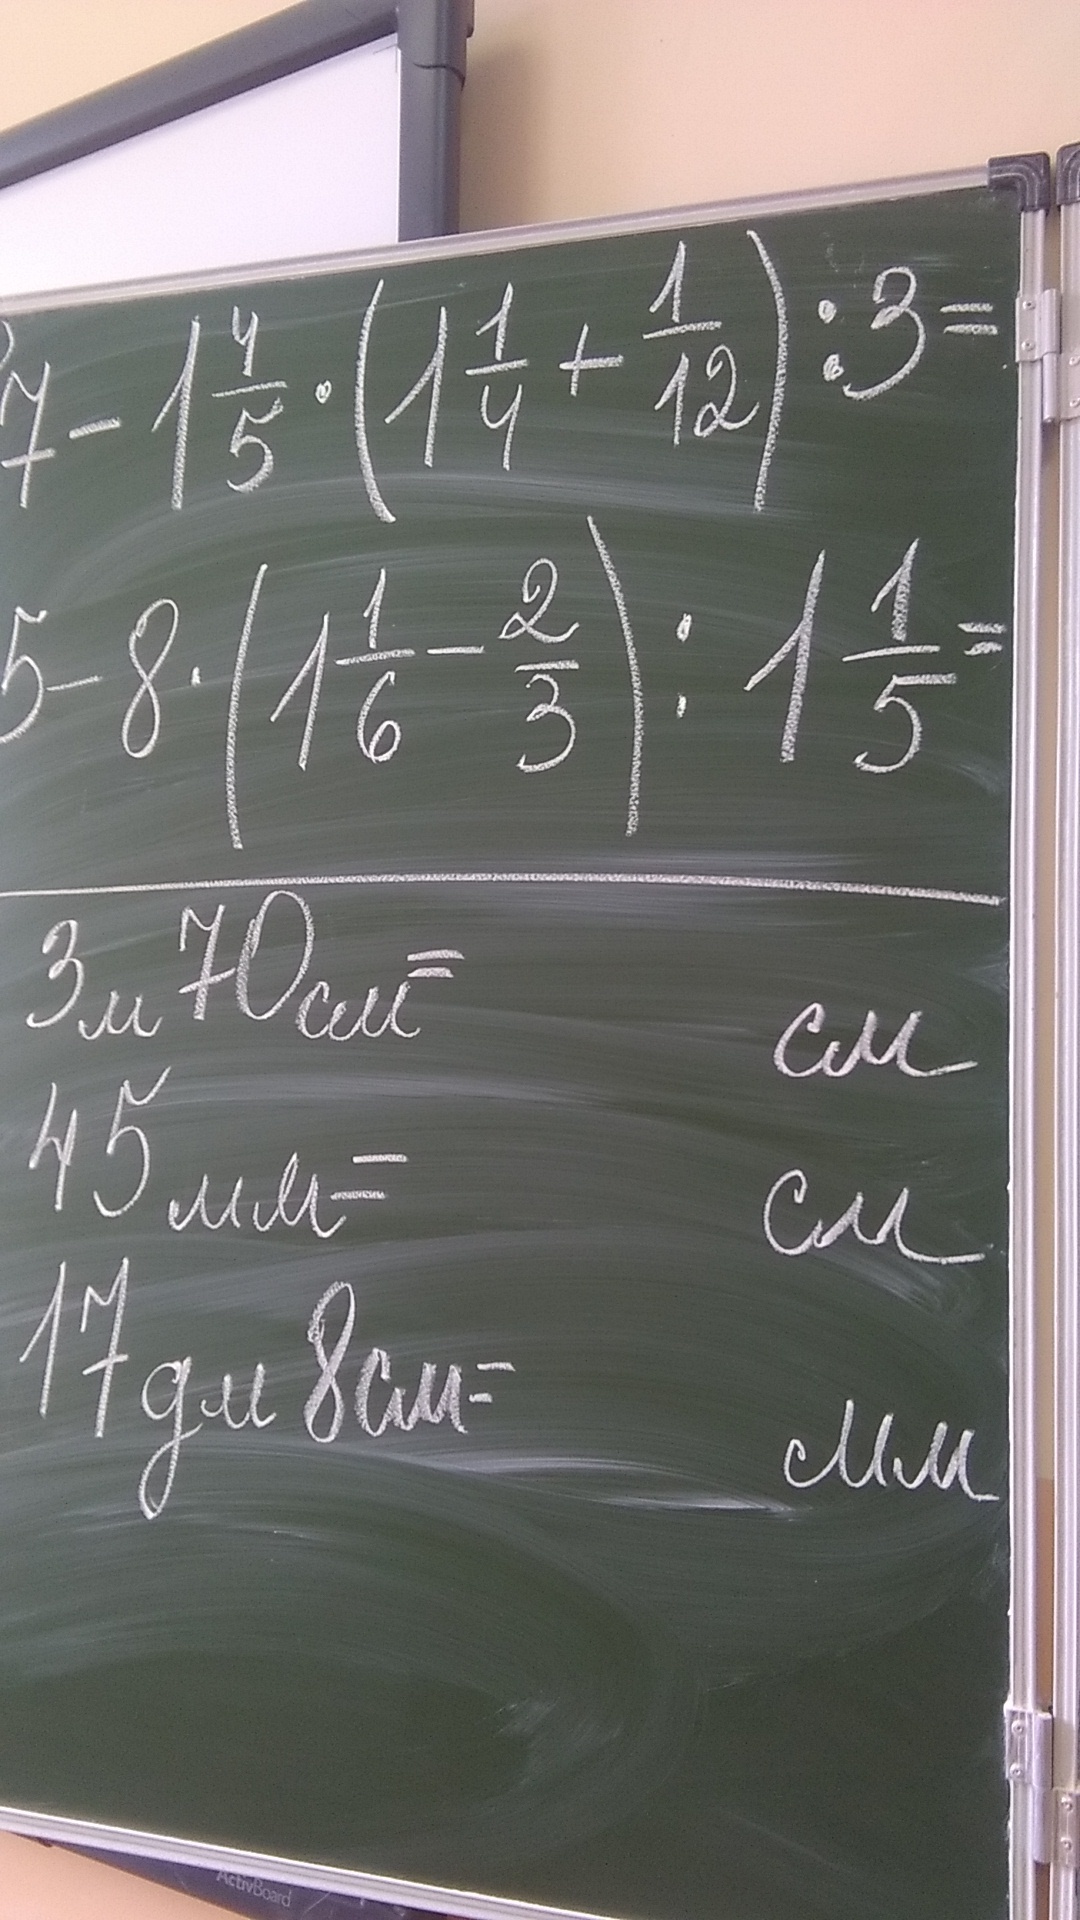 7 - 1 4/5 · (1 1/4 + 1/12) : 3 =
5 - 8 · (1 1/6 - 2/3) : 1 1/5 =
3м 70см = см
45мм = см
17дм 8см = мм
ActivBoard